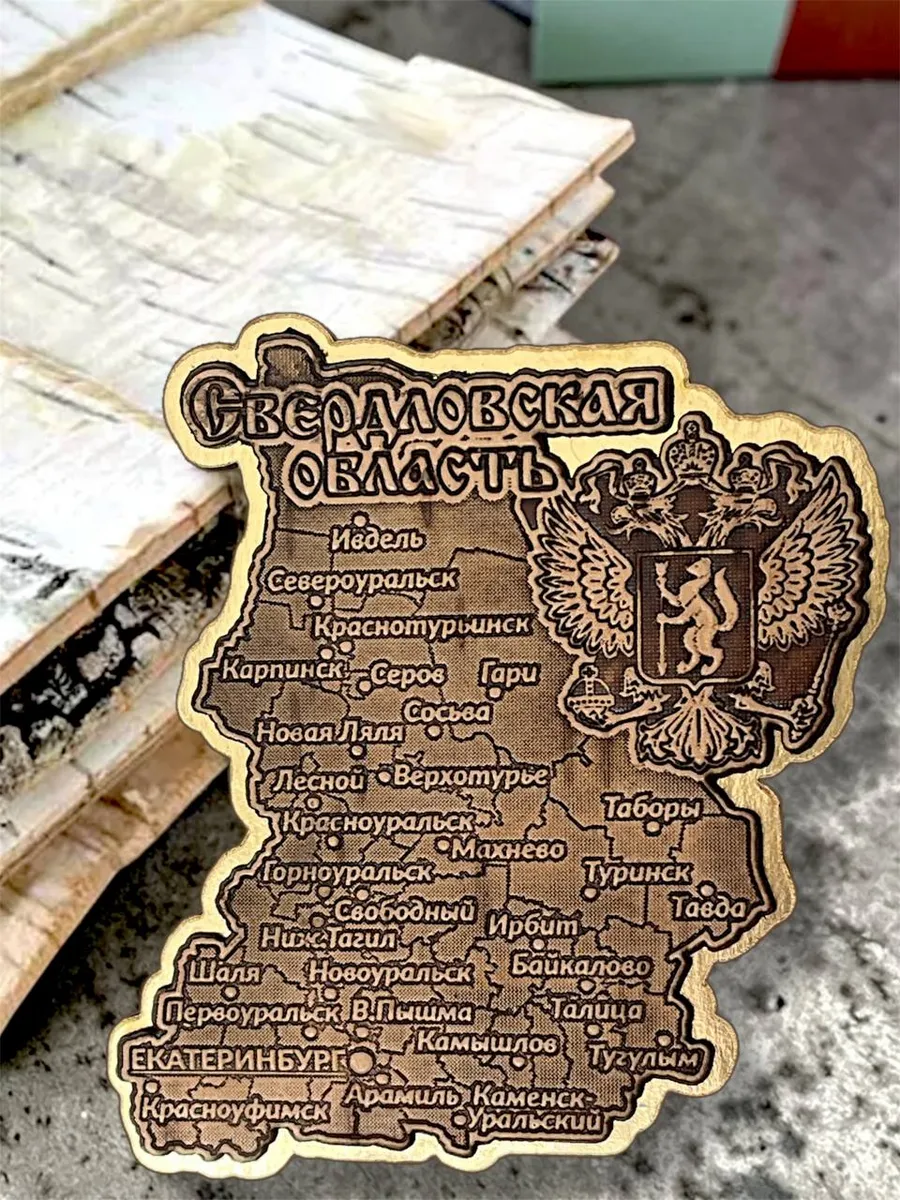 Свердловская
область
Ивдель
Североуральск
Краснотурьинск
Карпинск Серов Гари
Сосьва
Новая Ляля
Лесной Верхотурье
Таборы
Красноуральск
Махнёво
Горноуральск Туринск
Свободный Тавда
Ирбит
Ниж.Тагил
Шаля Новоуральск Байкалово
Первоуральск В.Пышма Талица
Камышлов
ЕКАТЕРИНБУРГ Тугулым
Арамиль Каменск-
Красноуфимск Уральский